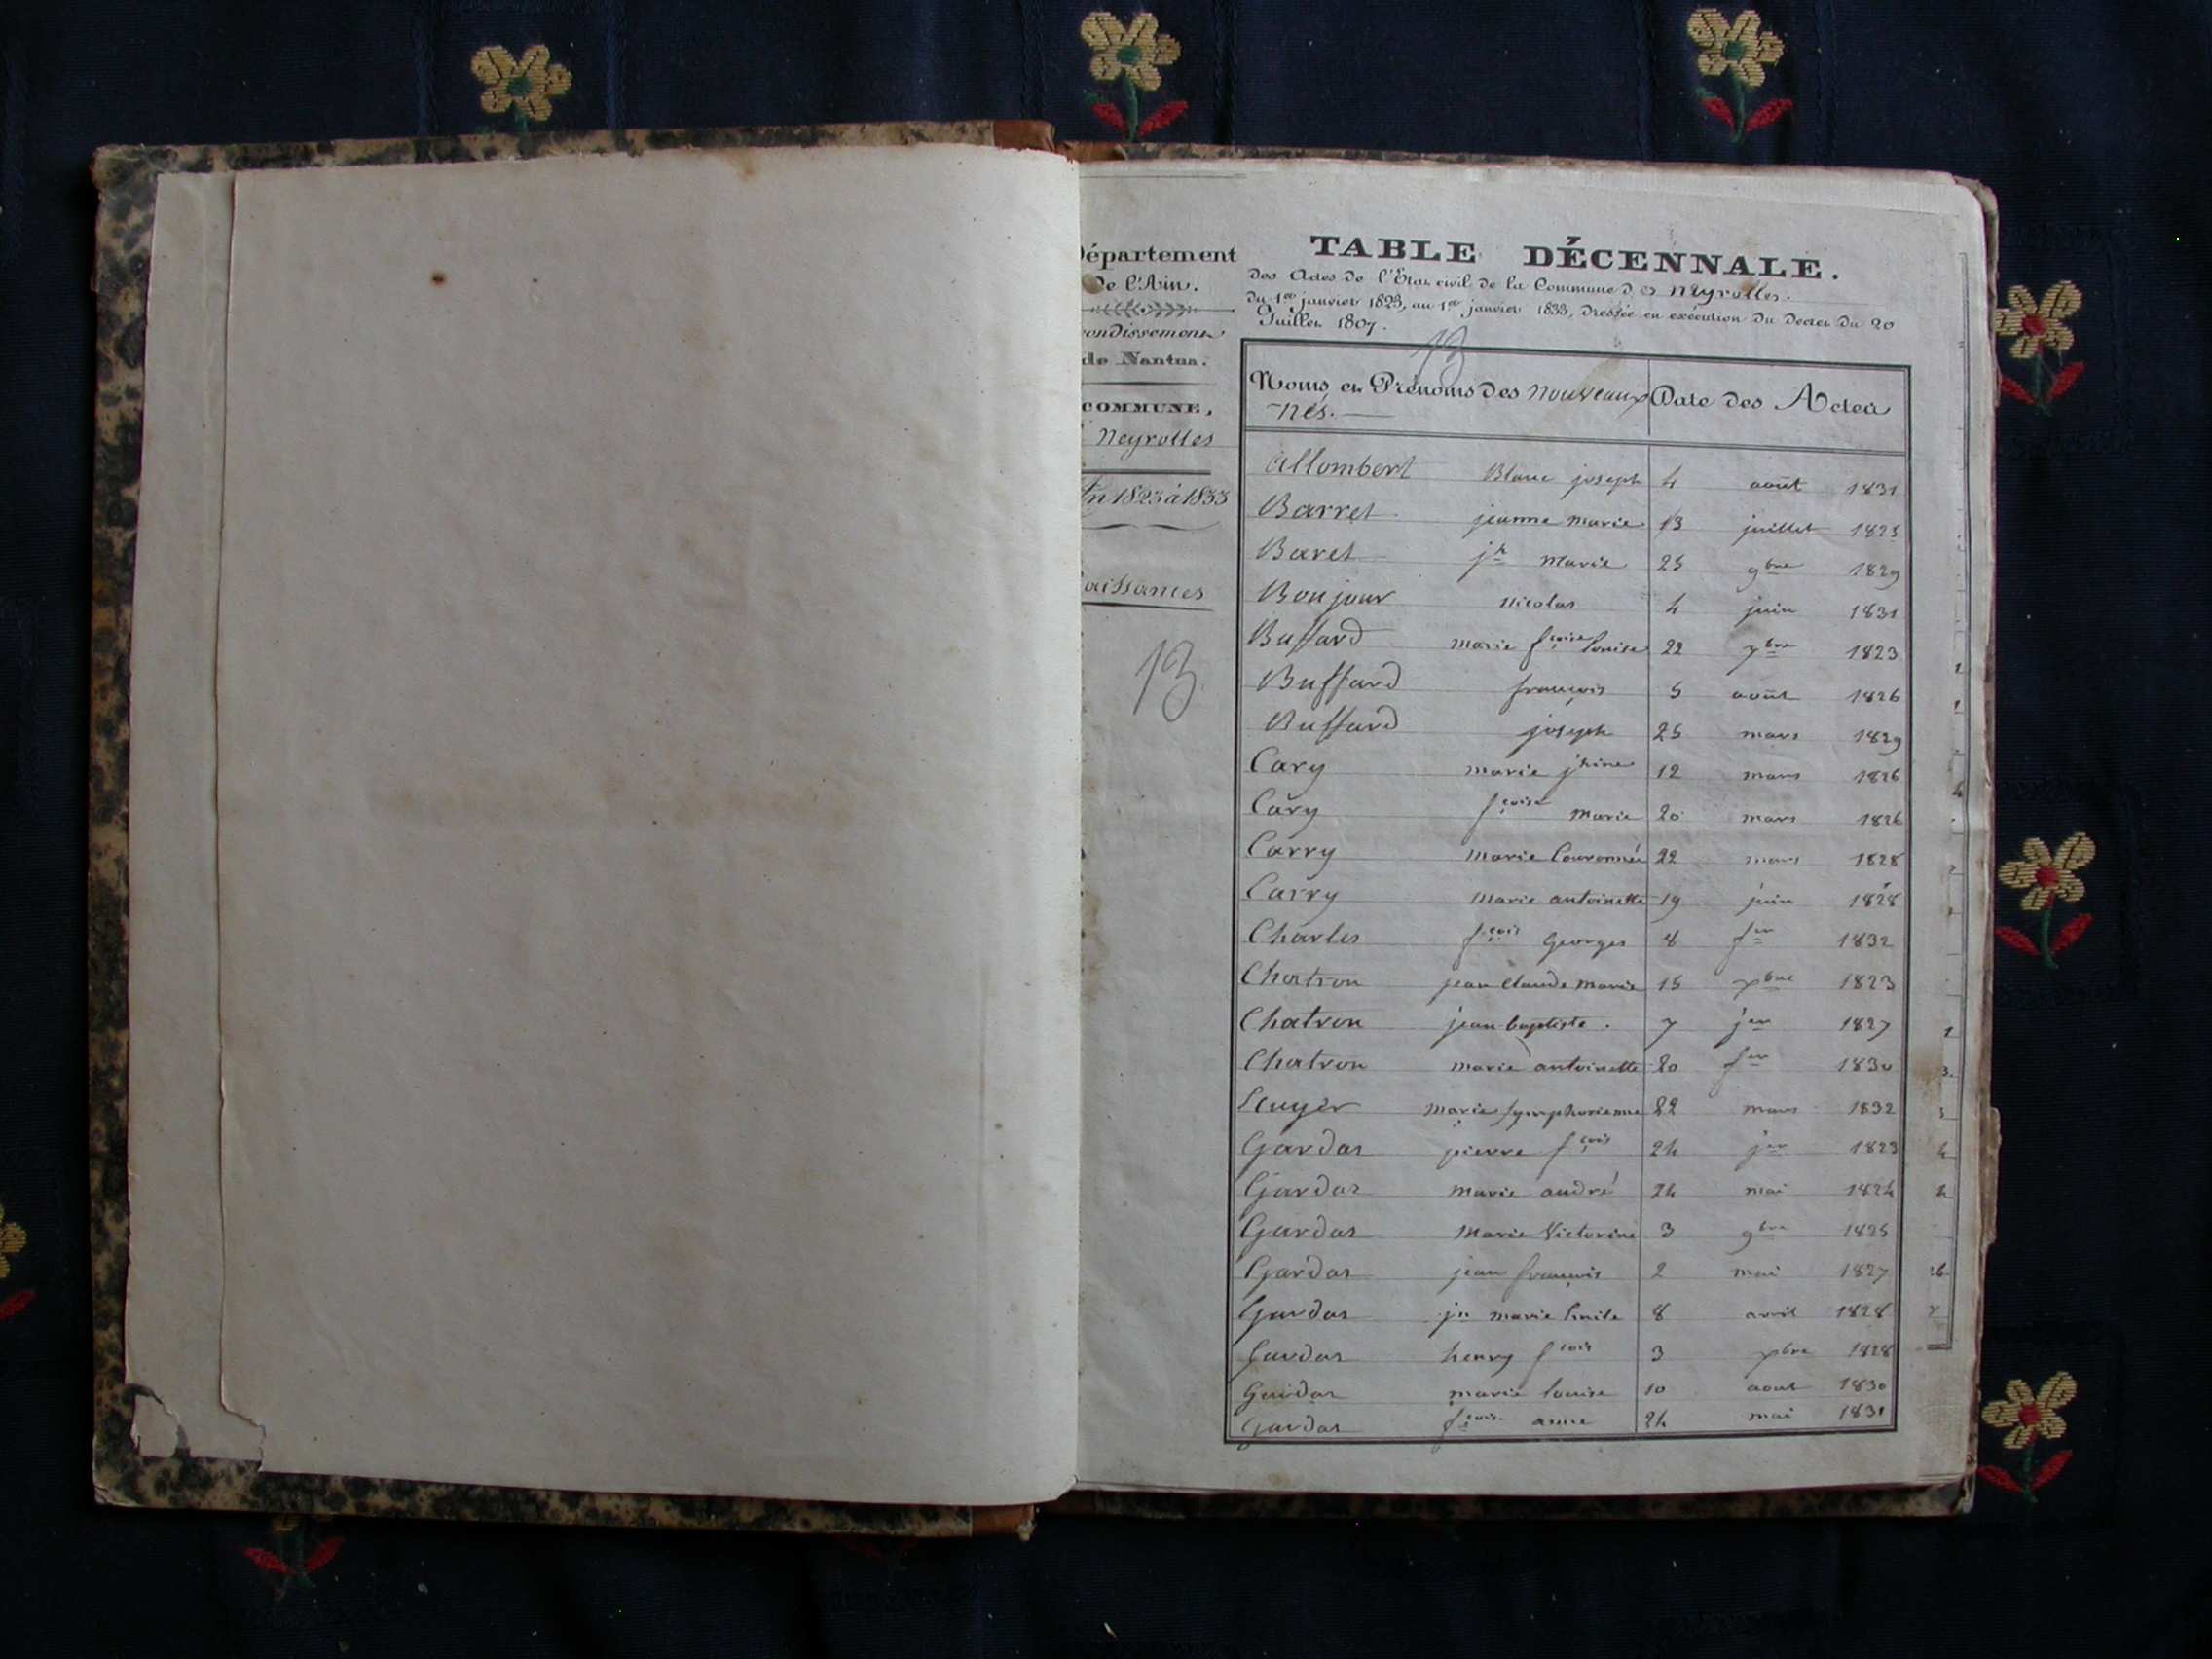 Département
de l'Ain.
ondissement
de Nantua.
COMMUNE,
Neyrolles
An 1823 à 1833
aissances
13
TABLE DÉCENNALE.
Des Actes de l'État civil de la Commune des Neyrolles.
du 1er janvier 1823, au 1er janvier 1833, Dressée en exécution du Décret du 20
Juillet 1807.
13
Noms et Prénoms des nouveaux nés. Date des Actes
Allombert Blanc joseph 4 août 1831
Barret jeanne marie 13 juillet 1825
Baret jh marie 25 9bre 1829
Bonjour nicolas 4 juin 1831
Buffard marie fcoise louise 22 7bre 1823
Buffard françois 5 août 1826
Buffard joseph 25 mars 1829
Cary marie jhine 12 mars 1826
Cary fcoise marie 20 mars 1826
Carry marie Couronnée 22 mars 1828
Carry marie antoinette 19 juin 1828
Charles fcois Georges 8 fer 1832
Chatron jean Claude marie 15 xbre 1823
Chatron jean baptiste. 7 jer 1827
Chatron marie antoinette 20 fer 1830
marie symphorienne 22 mars 1832
Gardas pierre fcois 24 jer 1823
Gardas marie andré 24 mai 1824
Gardas marie Victorine 3 9bre 1825
Gardas jean françois 2 mai 1827
Gardas jn marie 8 avril 1828
Gardas henry fcois 3 xbre 1828
Gardas marie louise 10 aout 1830
Gardas fcoise anne 24 mai 1831